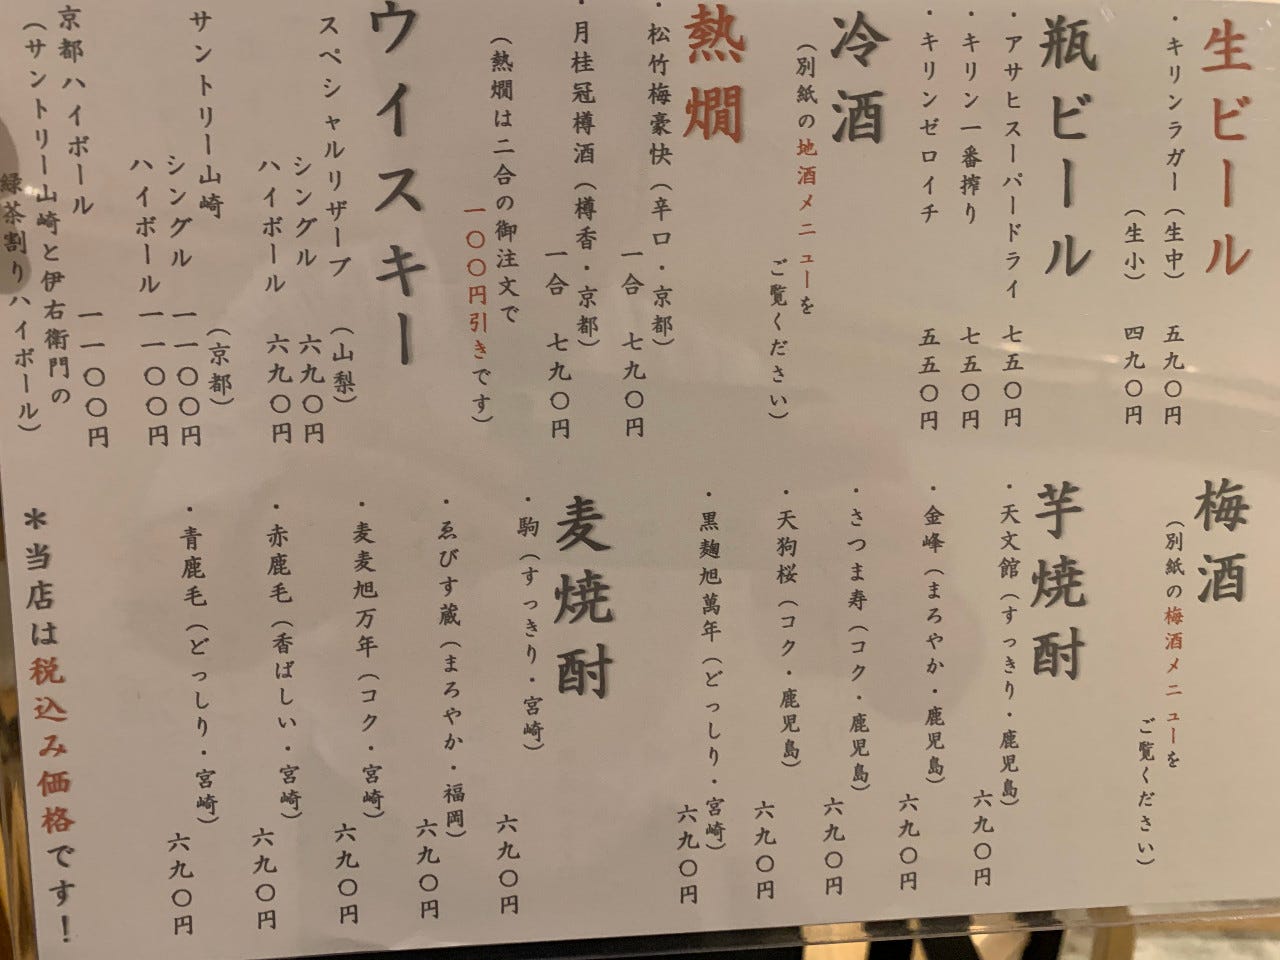 生ビール
・キリンラガー（生中） 五九〇円
（生小） 四九〇円
瓶ビール
・アサヒスーパードライ 七五〇円
・キリン一番搾り 七五〇円
・キリンゼロイチ 五五〇円
冷酒
（別紙の地酒メニューを
ご覧ください）
熱燗
・松竹梅豪快（辛口・京都）
一合 七九〇円
・月桂冠樽酒（樽香・京都）
一合 七九〇円
（熱燗は二合の御注文で
一〇〇円引きです）
ウイスキー
スペシャルリザーブ（山梨）
シングル 六九〇円
ハイボール 六九〇円
サントリー山崎（京都）
シングル 一一〇〇円
ハイボール 一一〇〇円
京都ハイボール 一一〇〇円
（サントリー山崎と伊右衛門の
緑茶割りハイボール）
梅酒
（別紙の梅酒メニューを
ご覧ください）
芋焼酎
・天文館（すっきり・鹿児島） 六九〇円
・金峰（まろやか・鹿児島） 六九〇円
・さつま寿（コク・鹿児島） 六九〇円
・天狗桜（コク・鹿児島） 六九〇円
・黒麹旭萬年（どっしり・宮崎） 六九〇円
麦焼酎
・駒（すっきり・宮崎） 六九〇円
・ゑびす蔵（まろやか・福岡） 六九〇円
・麦麦旭万年（コク・宮崎） 六九〇円
・赤鹿毛（香ばしい・宮崎） 六九〇円
・青鹿毛（どっしり・宮崎） 六九〇円
＊当店は税込み価格です！